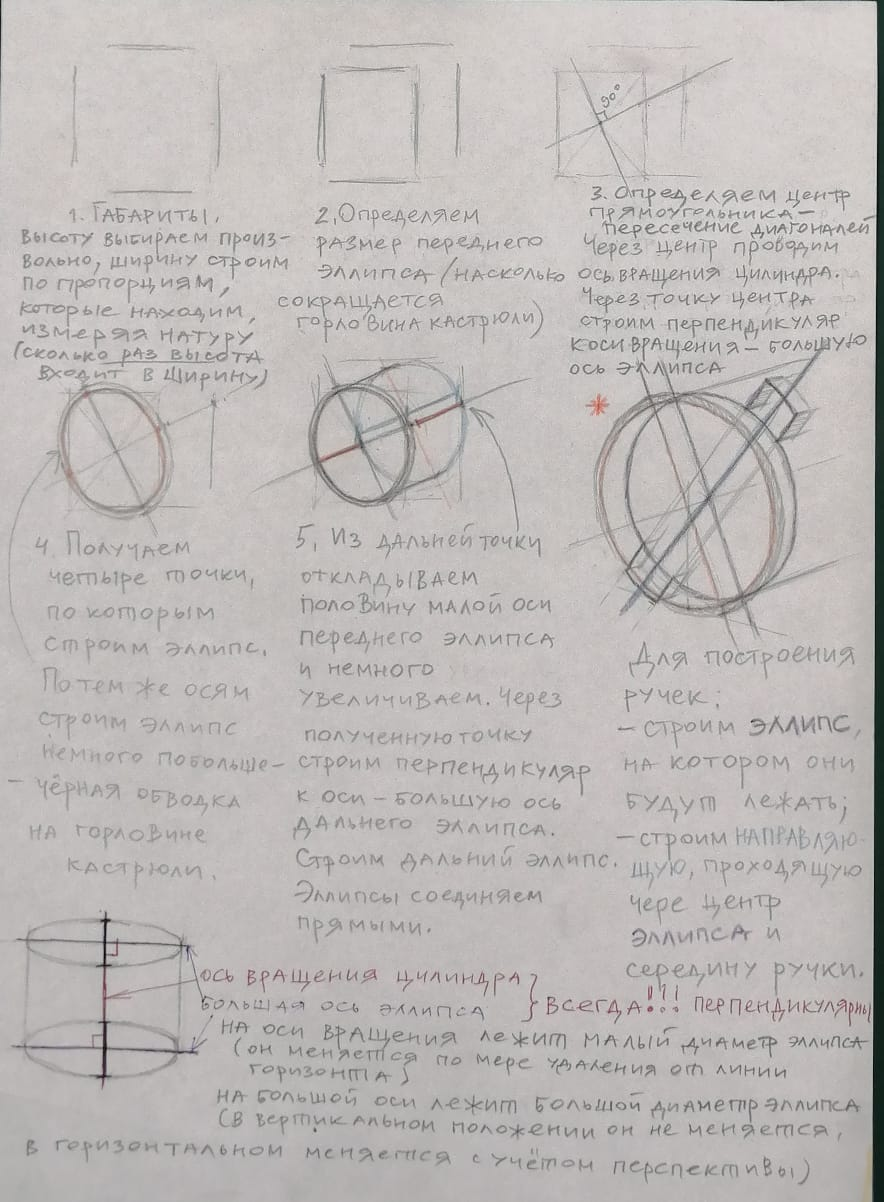 90°
1. ГАБАРИТЫ,
ВЫСОТУ ВЫБИРАЕМ ПРОИЗ-
ВОЛЬНО, ШИРИНУ СТРОИМ
ПО ПРОПОРЦИЯМ,
КОТОРЫЕ НАХОДИМ,
ИЗМЕРЯЯ НАТУРУ
(СКОЛЬКО РАЗ ВЫСОТА
ВХОДИТ В ШИРИНУ)
2. ОПРЕДЕЛЯЕМ
РАЗМЕР ПЕРЕДНЕГО
ЭЛЛИПСА (НАСКОЛЬКО
СОКРАЩАЕТСЯ
ГОРЛОВИНА КАСТРЮЛИ)
3. ОПРЕДЕЛЯЕМ ЦЕНТР
ПРЯМОУГОЛЬНИКА —
ПЕРЕСЕЧЕНИЕ ДИАГОНАЛЕЙ
ЧЕРЕЗ ЦЕНТР ПРОВОДИМ
ОСЬ ВРАЩЕНИЯ ЦИЛИНДРА.
ЧЕРЕЗ ТОЧКУ ЦЕНТРА
СТРОИМ ПЕРПЕНДИКУЛЯР
К ОСИ ВРАЩЕНИЯ — БОЛЬШУЮ
ОСЬ ЭЛЛИПСА
4. ПОЛУЧАЕМ
ЧЕТЫРЕ ТОЧКИ,
ПО КОТОРЫМ
СТРОИМ ЭЛЛИПС.
ПО ТЕМ ЖЕ ОСЯМ
СТРОИМ ЭЛЛИПС
НЕМНОГО ПОБОЛЬШЕ —
— ЧЁРНАЯ ОБВОДКА
НА ГОРЛОВИНЕ
КАСТРЮЛИ.
5. ИЗ ДАЛЬНЕЙ ТОЧКИ
ОТКЛАДЫВАЕМ
ПОЛОВИНУ МАЛОЙ ОСИ
ПЕРЕДНЕГО ЭЛЛИПСА
И НЕМНОГО
УВЕЛИЧИВАЕМ. ЧЕРЕЗ
ПОЛУЧЕННУЮ ТОЧКУ
СТРОИМ ПЕРПЕНДИКУЛЯР
К ОСИ — БОЛЬШУЮ ОСЬ
ДАЛЬНЕГО ЭЛЛИПСА.
СТРОИМ ДАЛЬНИЙ ЭЛЛИПС.
ЭЛЛИПСЫ СОЕДИНЯЕМ
ПРЯМЫМИ.
*
ДЛЯ ПОСТРОЕНИЯ
РУЧЕК:
— СТРОИМ ЭЛЛИПС,
НА КОТОРОМ ОНИ
БУДУТ ЛЕЖАТЬ;
— СТРОИМ НАПРАВЛЯЮ-
ЩУЮ, ПРОХОДЯЩУЮ
ЧЕРЕ ЦЕНТР
ЭЛЛИПСА И
СЕРЕДИНУ РУЧКИ.
ОСЬ ВРАЩЕНИЯ ЦИЛИНДРА
БОЛЬШАЯ ОСЬ ЭЛЛИПСА
ВСЕГДА!!! ПЕРПЕНДИКУЛЯРНЫ
НА ОСИ ВРАЩЕНИЯ ЛЕЖИТ МАЛЫЙ ДИАМЕТР ЭЛЛИПСА
(ОН МЕНЯЕТСЯ ПО МЕРЕ УДАЛЕНИЯ ОТ ЛИНИИ
ГОРИЗОНТА)
НА БОЛЬШОЙ ОСИ ЛЕЖИТ БОЛЬШОЙ ДИАМЕТР ЭЛЛИПСА
(В ВЕРТИКАЛЬНОМ ПОЛОЖЕНИИ ОН НЕ МЕНЯЕТСЯ,
В ГОРИЗОНТАЛЬНОМ МЕНЯЕТСЯ С УЧЁТОМ ПЕРСПЕКТИВЫ)